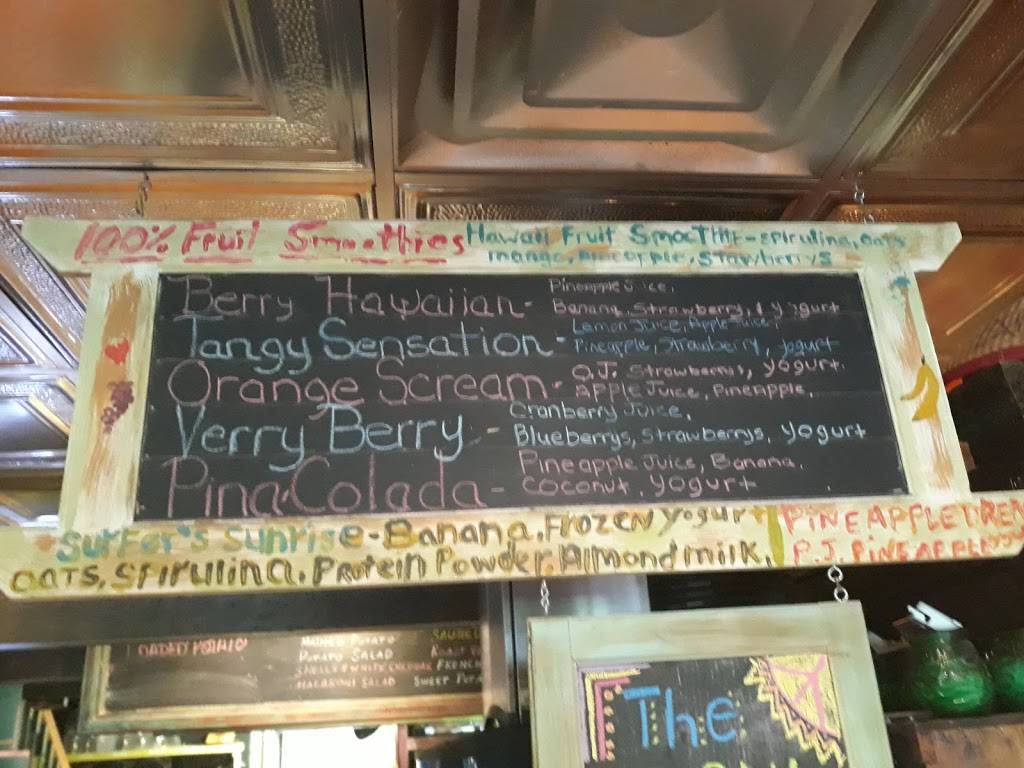 100% Fruit Smoothies
Hawaii Fruit Smoothie - spirulina, oats
mango, pineapple, strawberrys
Berry Hawaiian - Pineapple Juice,
Banana, Strawberry, yogurt
Tangy Sensation - Lemon Juice, Apple Juice,
Pineapple, Strawberry, yogurt
Orange Scream - O.J. Strawberrys, yogurt.
apple Juice, Pineapple,
Verry Berry - Cranberry Juice,
Blueberrys, Strawberrys, yogurt
Pina Colada - Pineapple Juice, Banana,
coconut, yogurt
Surfer's Sunrise - Banana, Frozen yogurt
oats, spirulina, Protein Powder, Almond milk,
PINEAPPLE DREA
P.J. PINEAPPLE
Potato Salad
Macaroni Salad
The